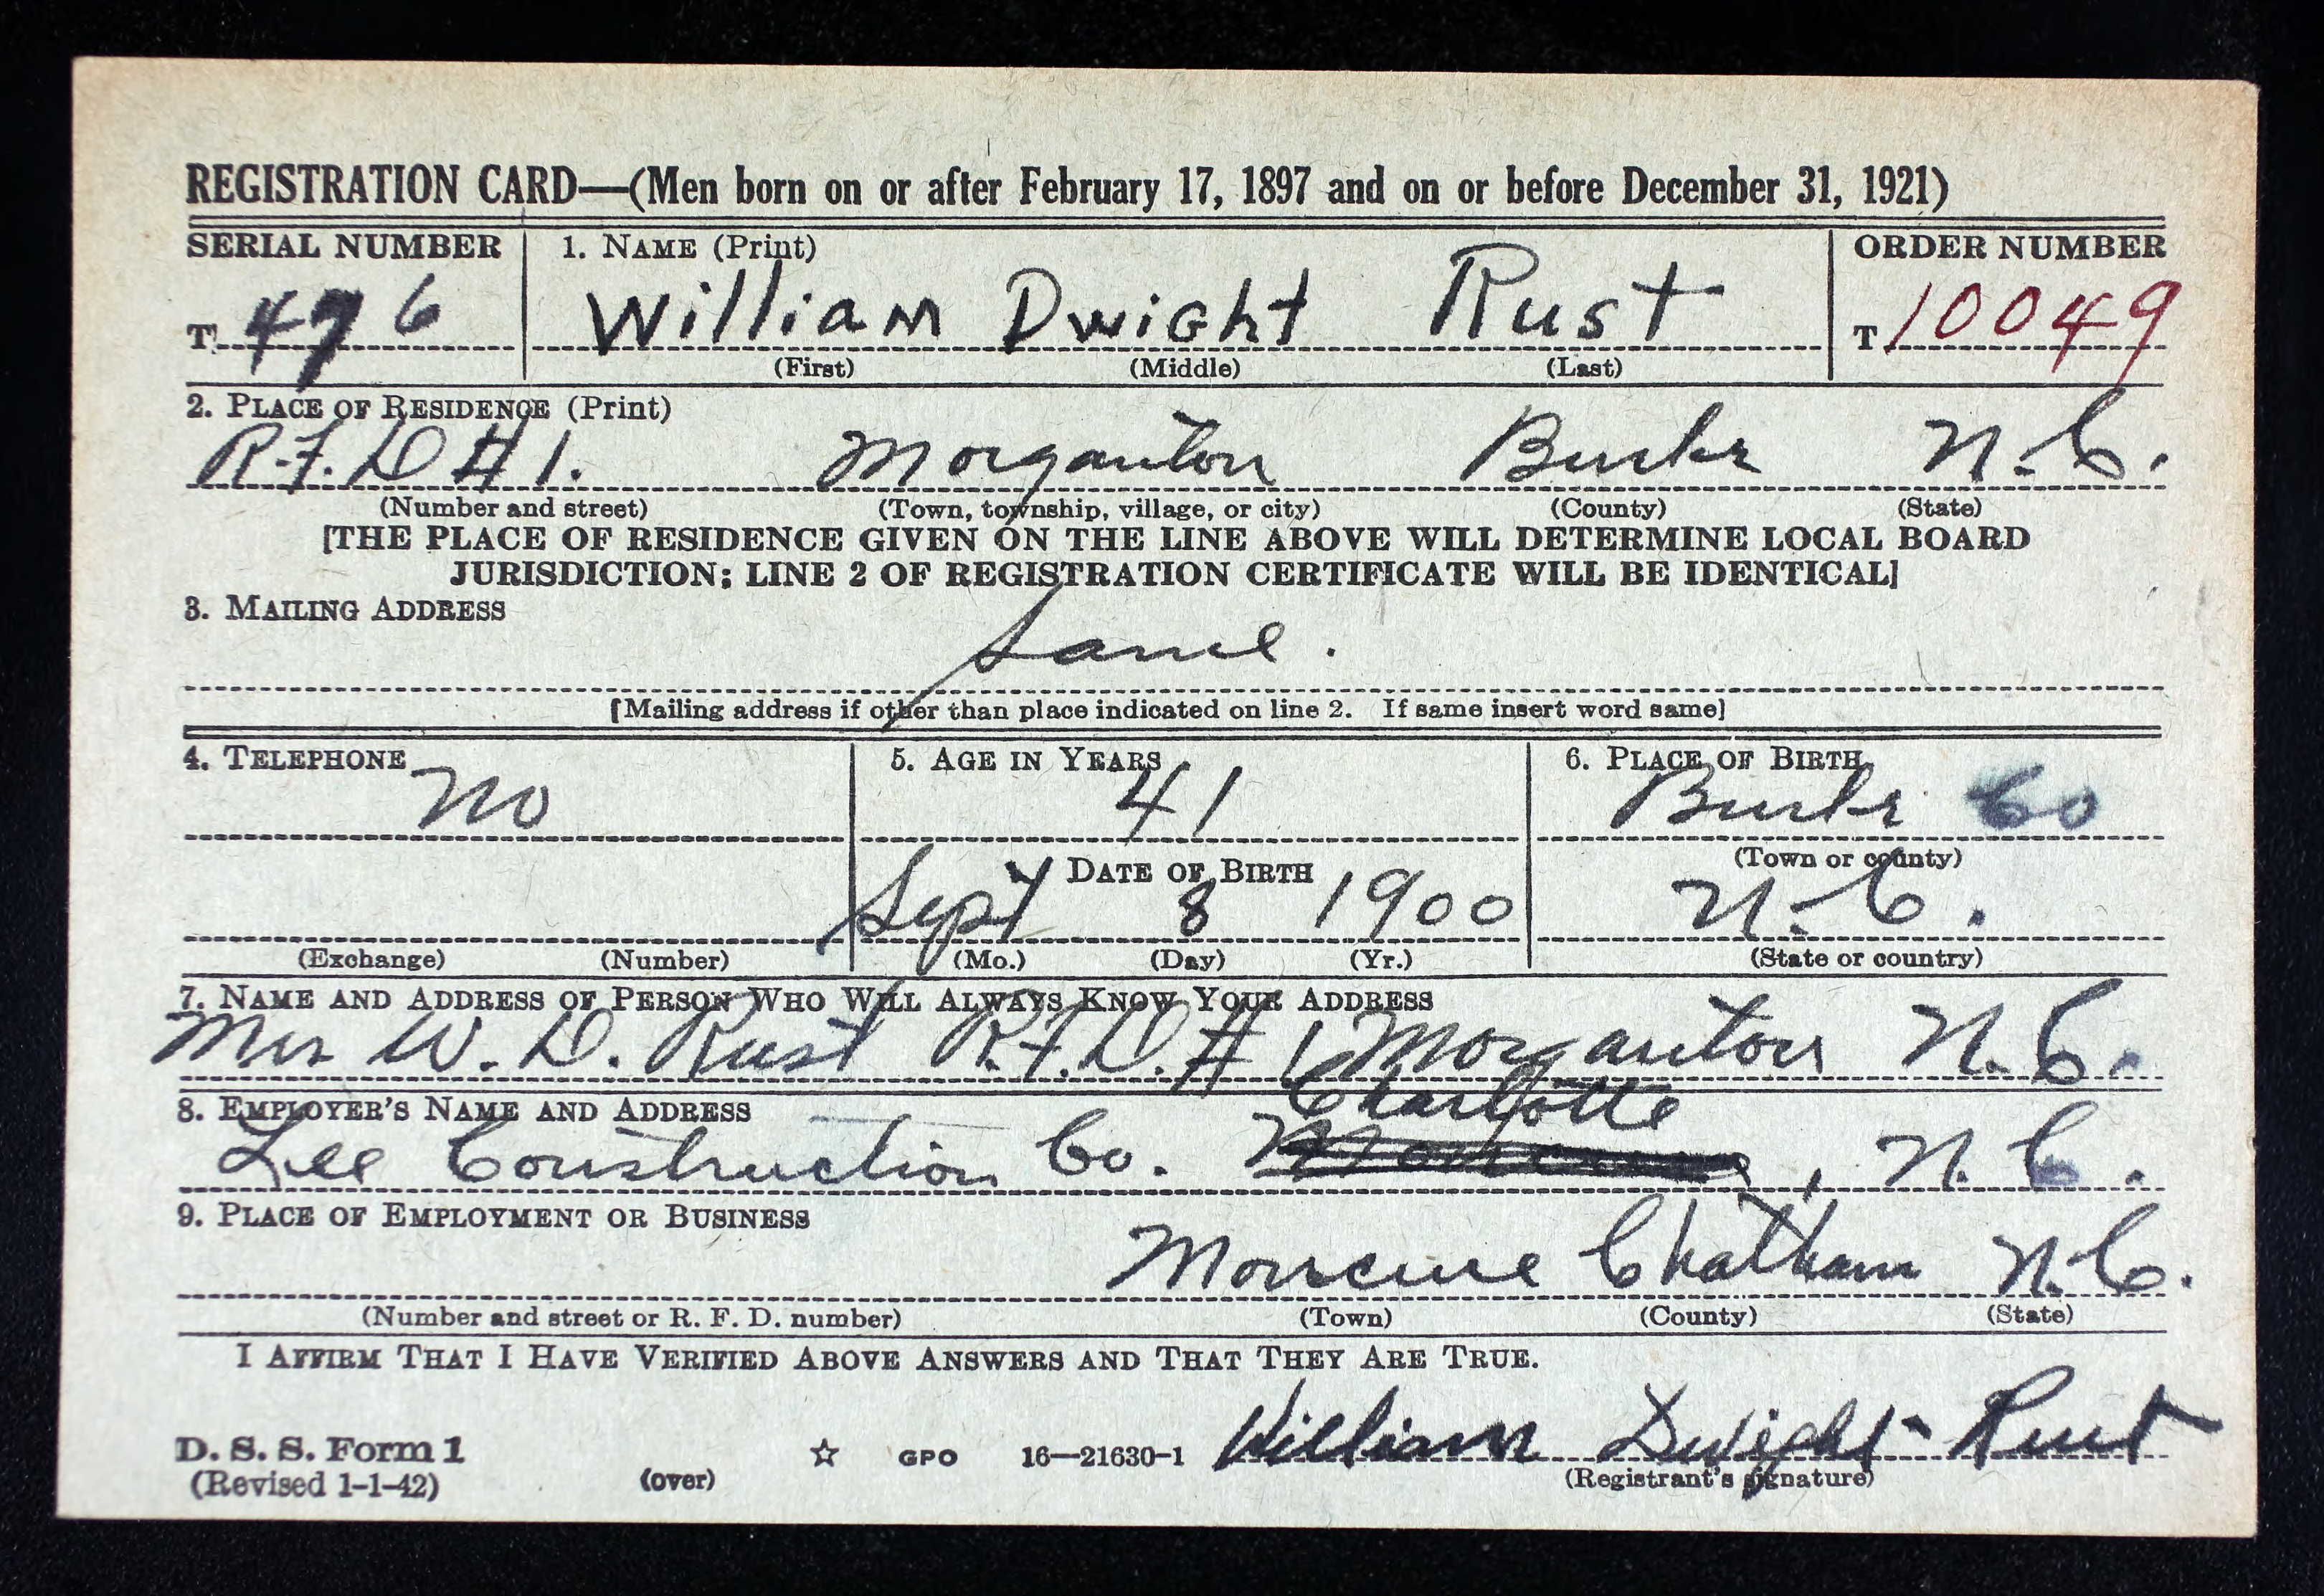 REGISTRATION CARD—(Men born on or after February 17, 1897 and on or before December 31, 1921)
SERIAL NUMBER 1. NAME (Print) ORDER NUMBER
T 476 William Dwight Rust T 10049
(First) (Middle) (Last)
2. PLACE OF RESIDENCE (Print)
R.F.D #1. Morganton Burke N.C.
(Number and street) (Town, township, village, or city) (County) (State)
[THE PLACE OF RESIDENCE GIVEN ON THE LINE ABOVE WILL DETERMINE LOCAL BOARD
JURISDICTION; LINE 2 OF REGISTRATION CERTIFICATE WILL BE IDENTICAL]
3. MAILING ADDRESS
Same.
[Mailing address if other than place indicated on line 2. If same insert word same]
4. TELEPHONE 5. AGE IN YEARS 6. PLACE OF BIRTH
No 41 Burke Co
DATE OF BIRTH (Town or county)
Sept 8 1900 N.C.
(Exchange) (Number) (Mo.) (Day) (Yr.) (State or country)
7. NAME AND ADDRESS OF PERSON WHO WILL ALWAYS KNOW YOUR ADDRESS
Mrs W. D. Rust R.F.D. #1 Morganton N.C.
8. EMPLOYER'S NAME AND ADDRESS
Lee Construction Co. Charlotte, N.C.
9. PLACE OF EMPLOYMENT OR BUSINESS
Moncure Chatham N.C.
(Number and street or R. F. D. number) (Town) (County) (State)
I AFFIRM THAT I HAVE VERIFIED ABOVE ANSWERS AND THAT THEY ARE TRUE.
D. S. S. Form 1 ☆ GPO 16—21630-1 William Dwight Rust
(Revised 1-1-42) (over) (Registrant's signature)